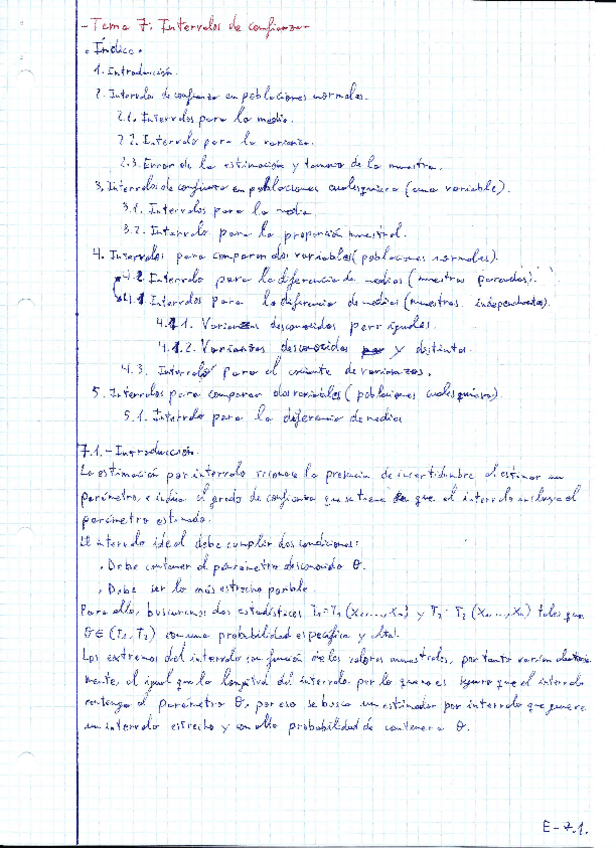 - Tema 7: Intervalos de confianza -
• Índice •
1. Introducción.
2. Intervalos de confianza en poblaciones normales.
2.1. Intervalos para la media.
2.2. Intervalo para la varianza.
2.3. Error de la estimación y tamaño de la muestra.
3. Intervalos de confianza en poblaciones cualesquiera (una variable).
3.1. Intervalos para la media.
3.2. Intervalo para la proporción muestral.
4. Intervalos para comparar dos variables (poblaciones normales).
4.2 Intervalo para la diferencia de medias (muestras pareadas).
4.1 Intervalos para la diferencia de medias (muestras independientes).
4.1.1. Varianzas desconocidas pero iguales.
4.1.2. Varianzas desconocidas y distintas.
4.3. Intervalo para el cociente de varianzas.
5. Intervalos para comparar dos variables (poblaciones cualesquiera).
5.1. Intervalo para la diferencia de medias
7.1.- Introducción.
La estimación por intervalo reconoce la presencia de incertidumbre al estimar un
parámetro, e indica el grado de confianza que se tiene de que el intervalo incluya el
parámetro estimado.
El intervalo ideal debe cumplir dos condiciones:
• Debe contener al parámetro desconocido θ.
• Debe ser lo más estrecho posible.
Para ello, buscaremos dos estadísticos T₁=T₁(X₁,...,Xn) y T₂=T₂(X₁,...,Xn) tales que
θ∈(T₁,T₂) con una probabilidad específica y alta.
Los extremos del intervalo son función de los valores muestrales, por tanto varían aleatoria-
mente, al igual que la longitud del intervalo por lo que no es seguro que el intervalo
contenga al parámetro θ, por eso se busca un estimador por intervalo que genere
un intervalo estrecho y con alta probabilidad de contener a θ.
E-7.1.